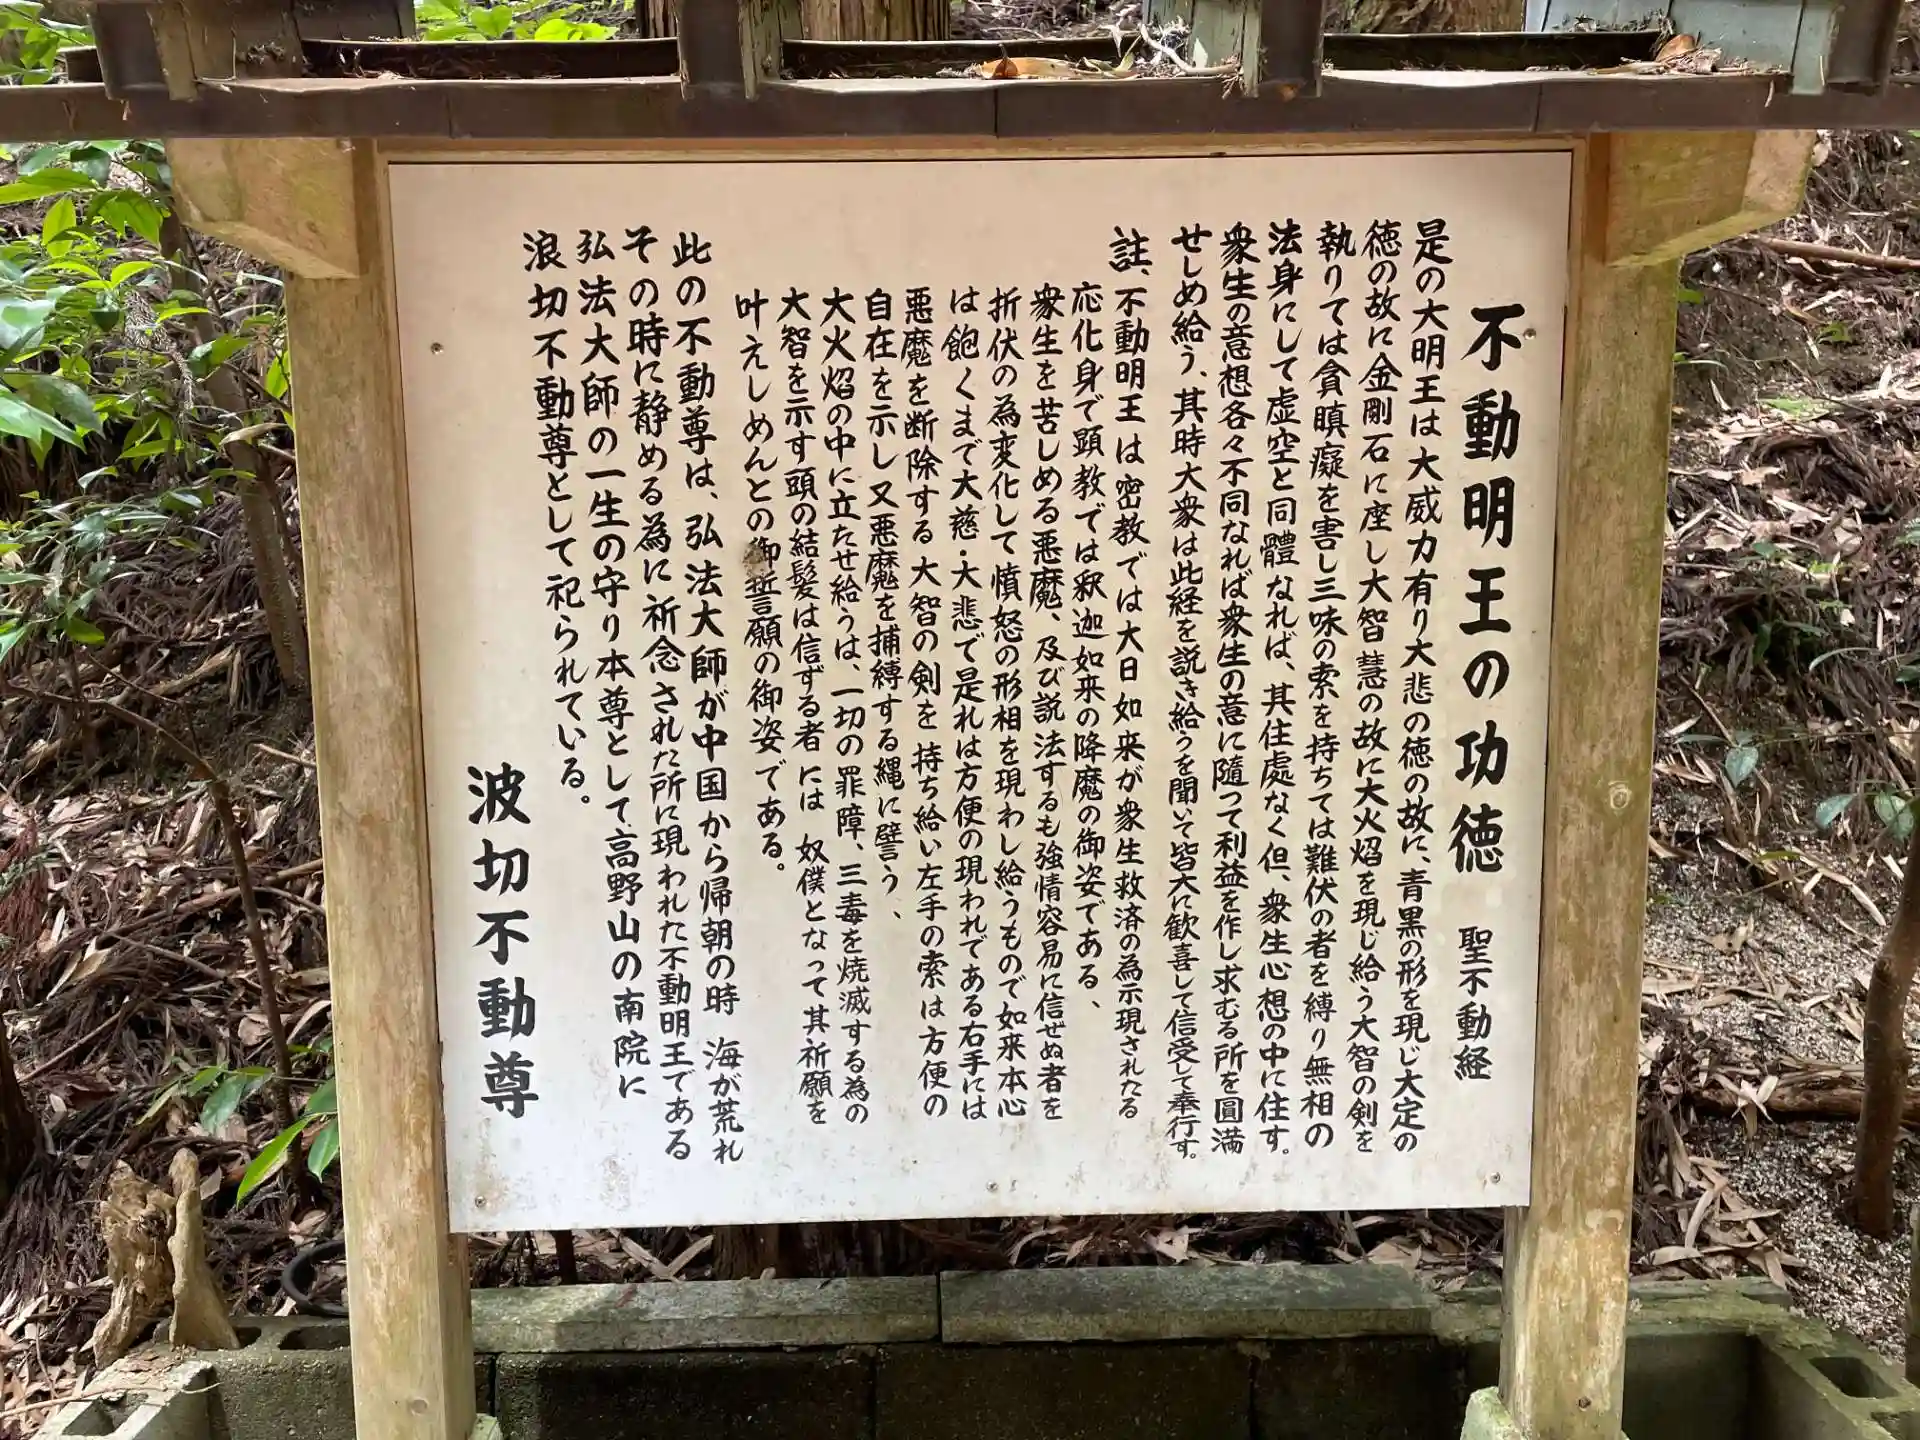 不動明王の功徳 聖不動経
是の大明王は大威力有り大悲の徳の故に、青黒の形を現じ大定の
徳の故に金剛石に座し大智慧の故に大火焰を現じ給う大智の剣を
執りては貪瞋癡を害し三味の索を持ちては難伏の者を縛り無相の
法身にして虚空と同體なれば、其住處なく但、衆生心想の中に住す。
衆生の意想各々不同なれば衆生の意に隨って利益を作し求むる所を圓満
せしめ給う、其時大衆は此経を説き給うを聞いて皆大に歓喜して信受して奉行す。
註、不動明王は密教では大日如来が衆生救済の為示現されたる
応化身で顕教では釈迦如来の降魔の御姿である、
衆生を苦しめる悪魔、及び説法するも強情容易に信ぜぬ者を
折伏の為変化して憤怒の形相を現わし給うもので如来本心
は飽くまで大慈・大悲で是れは方便の現われである右手には
悪魔を断除する大智の剣を持ち給い左手の索は方便の
自在を示し又悪魔を捕縛する縄に譬う、
大火焰の中に立たせ給うは、一切の罪障、三毒を焼滅する為の
大智を示す頭の結髪は信ずる者には奴僕となって其祈願を
叶えしめんとの御誓願の御姿である。
此の不動尊は、弘法大師が中国から帰朝の時 海が荒れ
その時に静める為に祈念された所に現われた不動明王である
弘法大師の一生の守り本尊として、高野山の南院に
浪切不動尊として祀られている。
波切不動尊